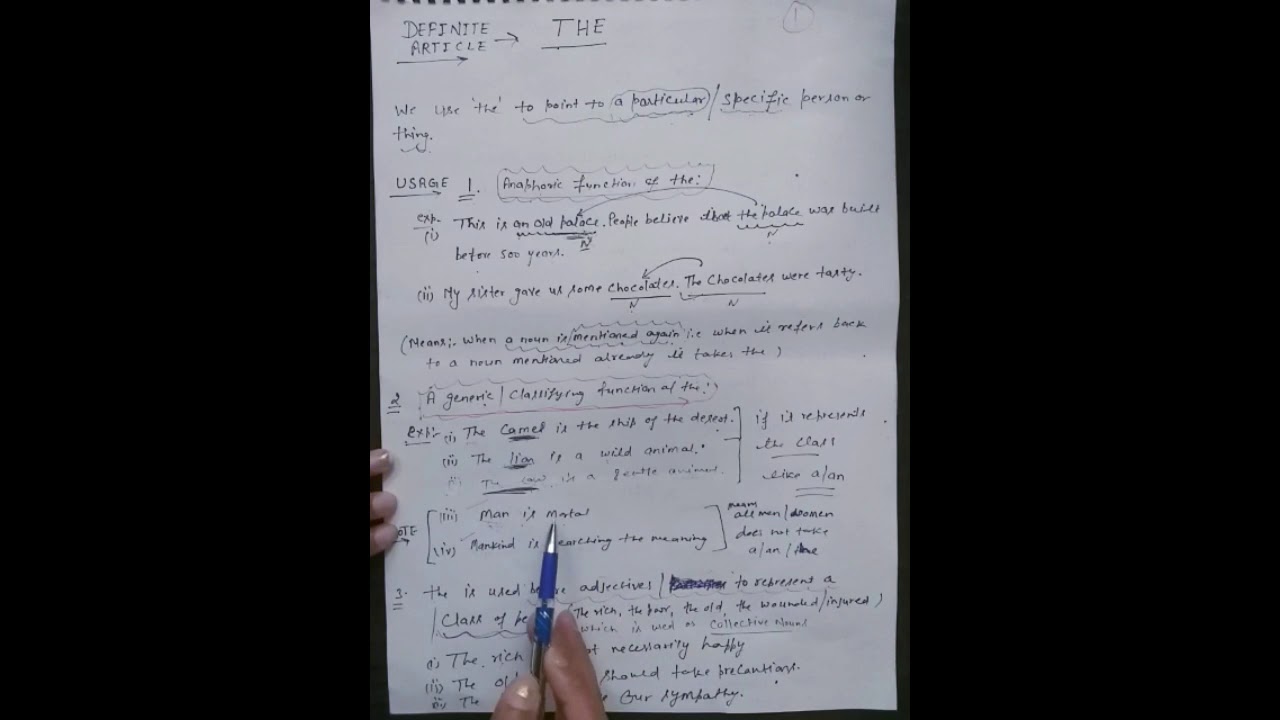 1
DEFINITE
ARTICLE → THE
We use 'the' to point to a particular / specific person or
thing.
USAGE 1. Anaphoric function of the:
exp.
(i) This is an old palace. People believe that the palace was built
N N
before 500 years.
(ii) My sister gave us some chocolates. The Chocolates were tasty.
N N
(Means;- When a noun is mentioned again i.e when it refers back
to a noun mentioned already it takes the)
2 A generic / Classifying function of the:
Exp:- (i) The Camel is the ship of the desert.
(ii) The lion is a wild animal.
The cow is a gentle animal.
if it represents
the class
like a/an
(iii) Man is mortal
(iv) Mankind is searching the meaning
means
all men / women
does not take
a/an / the
3. the is used before adjectives / to represent a
Class of (The rich, the poor, the old, the wounded/injured)
which is used as Collective Nouns
(i) The rich necessarily happy
(ii) The should take precautions.
The our sympathy.